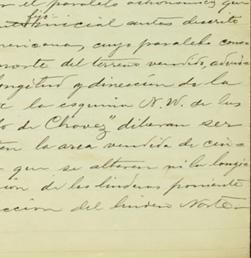 r el paralelo astronómico que
inicial antes descrito
ericana, cuyo paralelo cons
norte del terreno vendido, advir
longitud y dirección de la
la esquina N.W. de los
lo de Chavez" deberan ser
ten la area vendida de cin
que se alteren ni la longi
ión de los linderos poniente
ección del lindero Norte